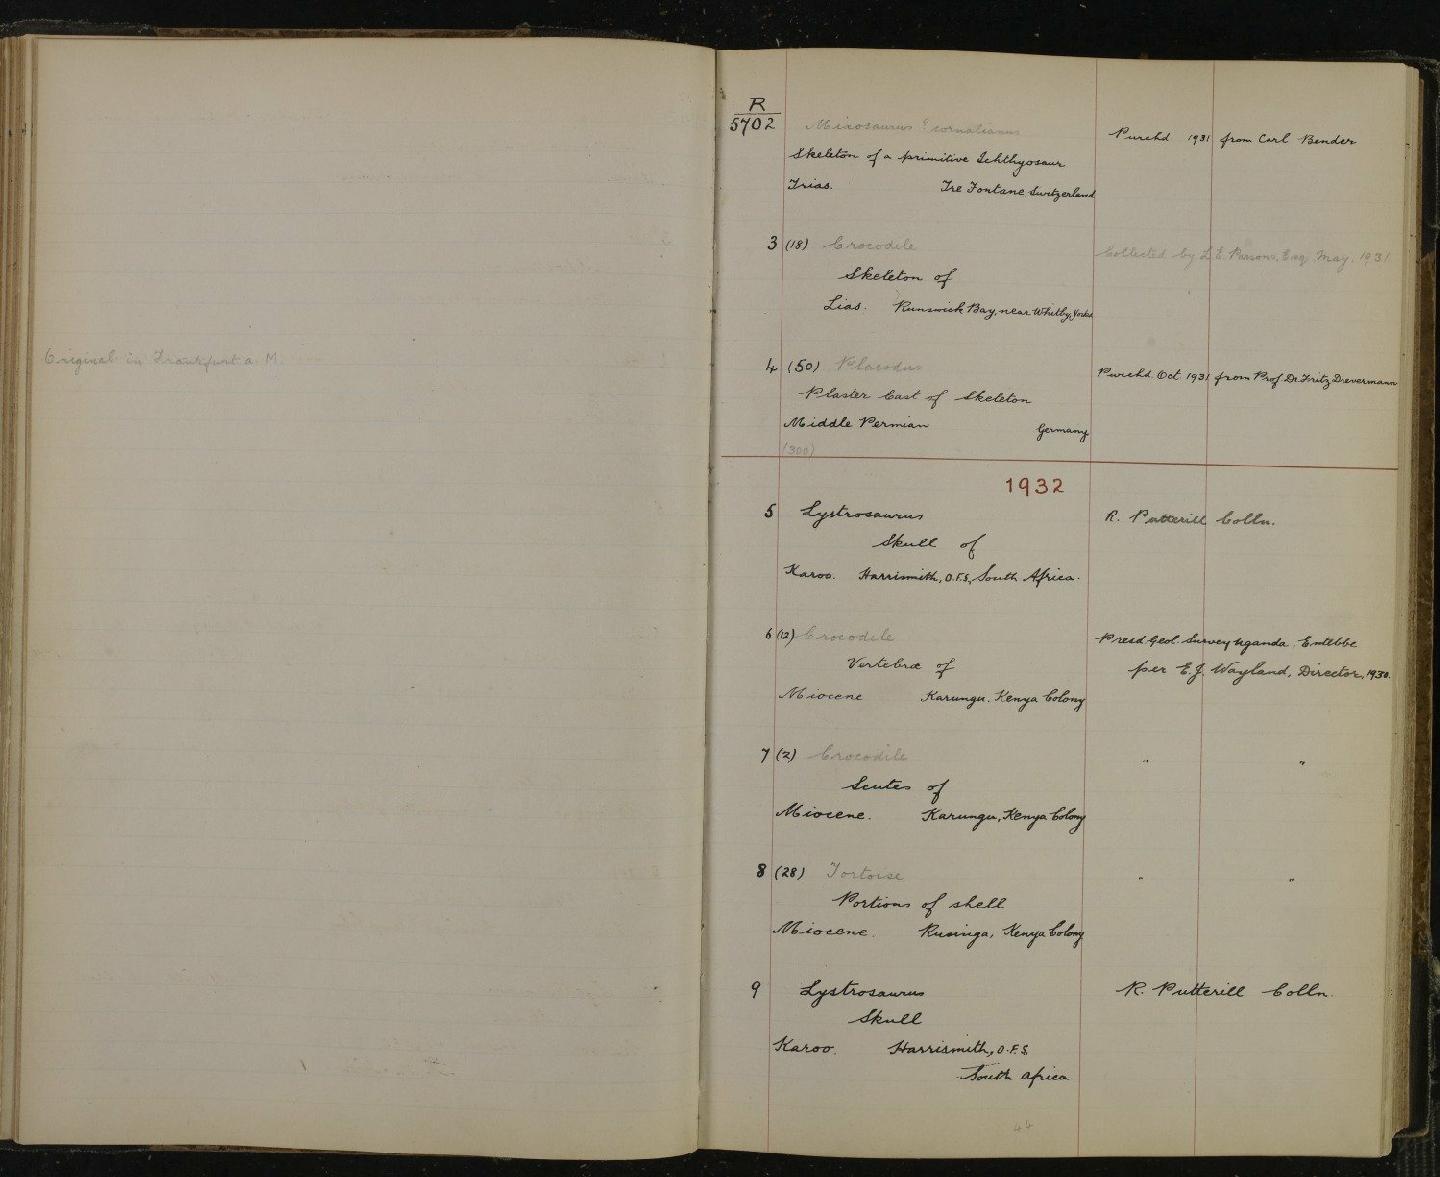 Original in Frankfurt a. M.
R
5702
Mixosaurus ? cornalianus
Purchd 1931 from Carl Bender
Skeleton of a primitive Ichthyosaur
Trias. Tre Fontane Switzerland
3 (18) Crocodile
Collected by L. E. Parsons, Esq May, 1931
Skeleton of
Lias. Runswick Bay, near Whitby, Yorks
4 (50) Placodus
Purchd. Oct 1931 from Prof Dr Fritz Drevermann
Plaster Cast of Skeleton
Middle Permian Germany
(300)
1932
5 Lystrosaurus
R. Putterill Colln.
Skull of
Karoo. Harrismith, O.F.S, South Africa.
6 (12) Crocodile
Presd Geol. Survey Uganda. Entebbe
Vertebræ of
per E.J. Wayland, Director, 1930.
Miocene Karungu. Kenya Colony
7 (2) Crocodile
" "
Scutes of
Miocene. Karungu, Kenya Colony
8 (28) Tortoise
" "
Portions of shell
Miocene. Rusinga, Kenya Colony
9 Lystrosaurus
R. Putterill Colln.
Skull
Karoo. Harrismith, O.F.S.
South Africa
44